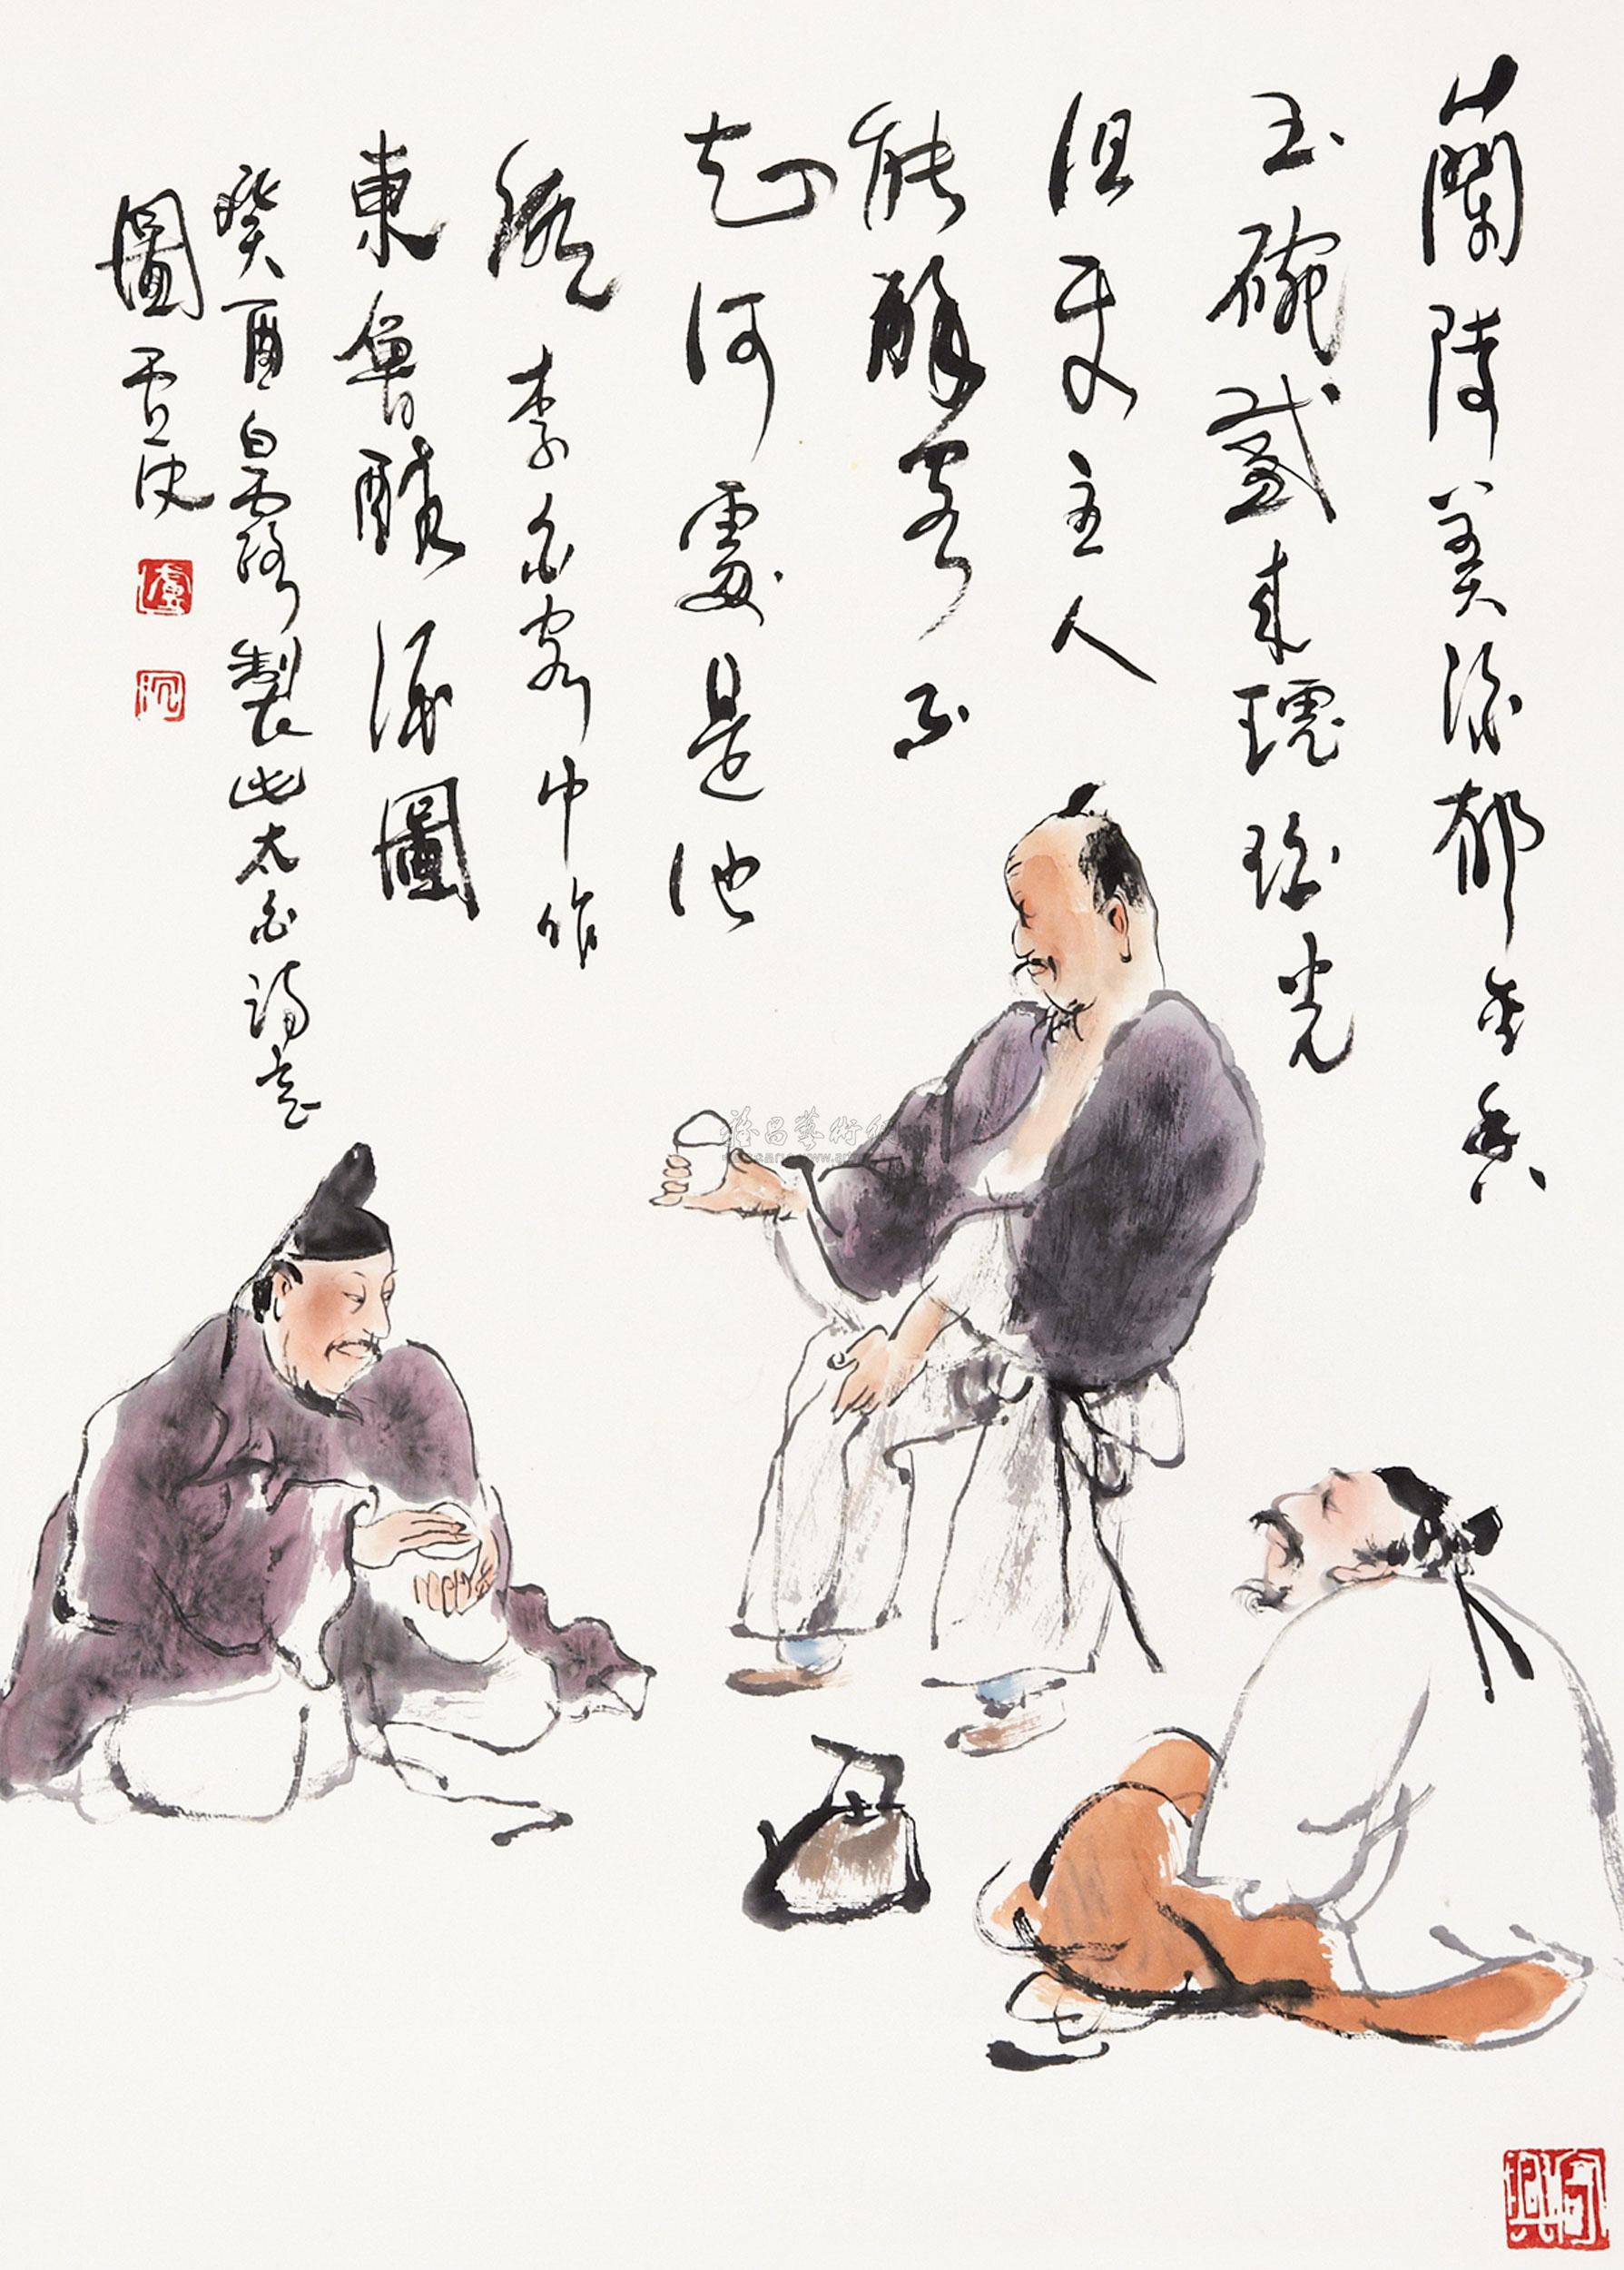 蘭陵美酒郁金香
玉碗盛來琥珀光
但使主人
能醉客不
知何處是他
鄉 李白客中作
東魯酒圖
癸酉白露製此太白詩意
圖 盧沉
盧
沉
雅昌藝術